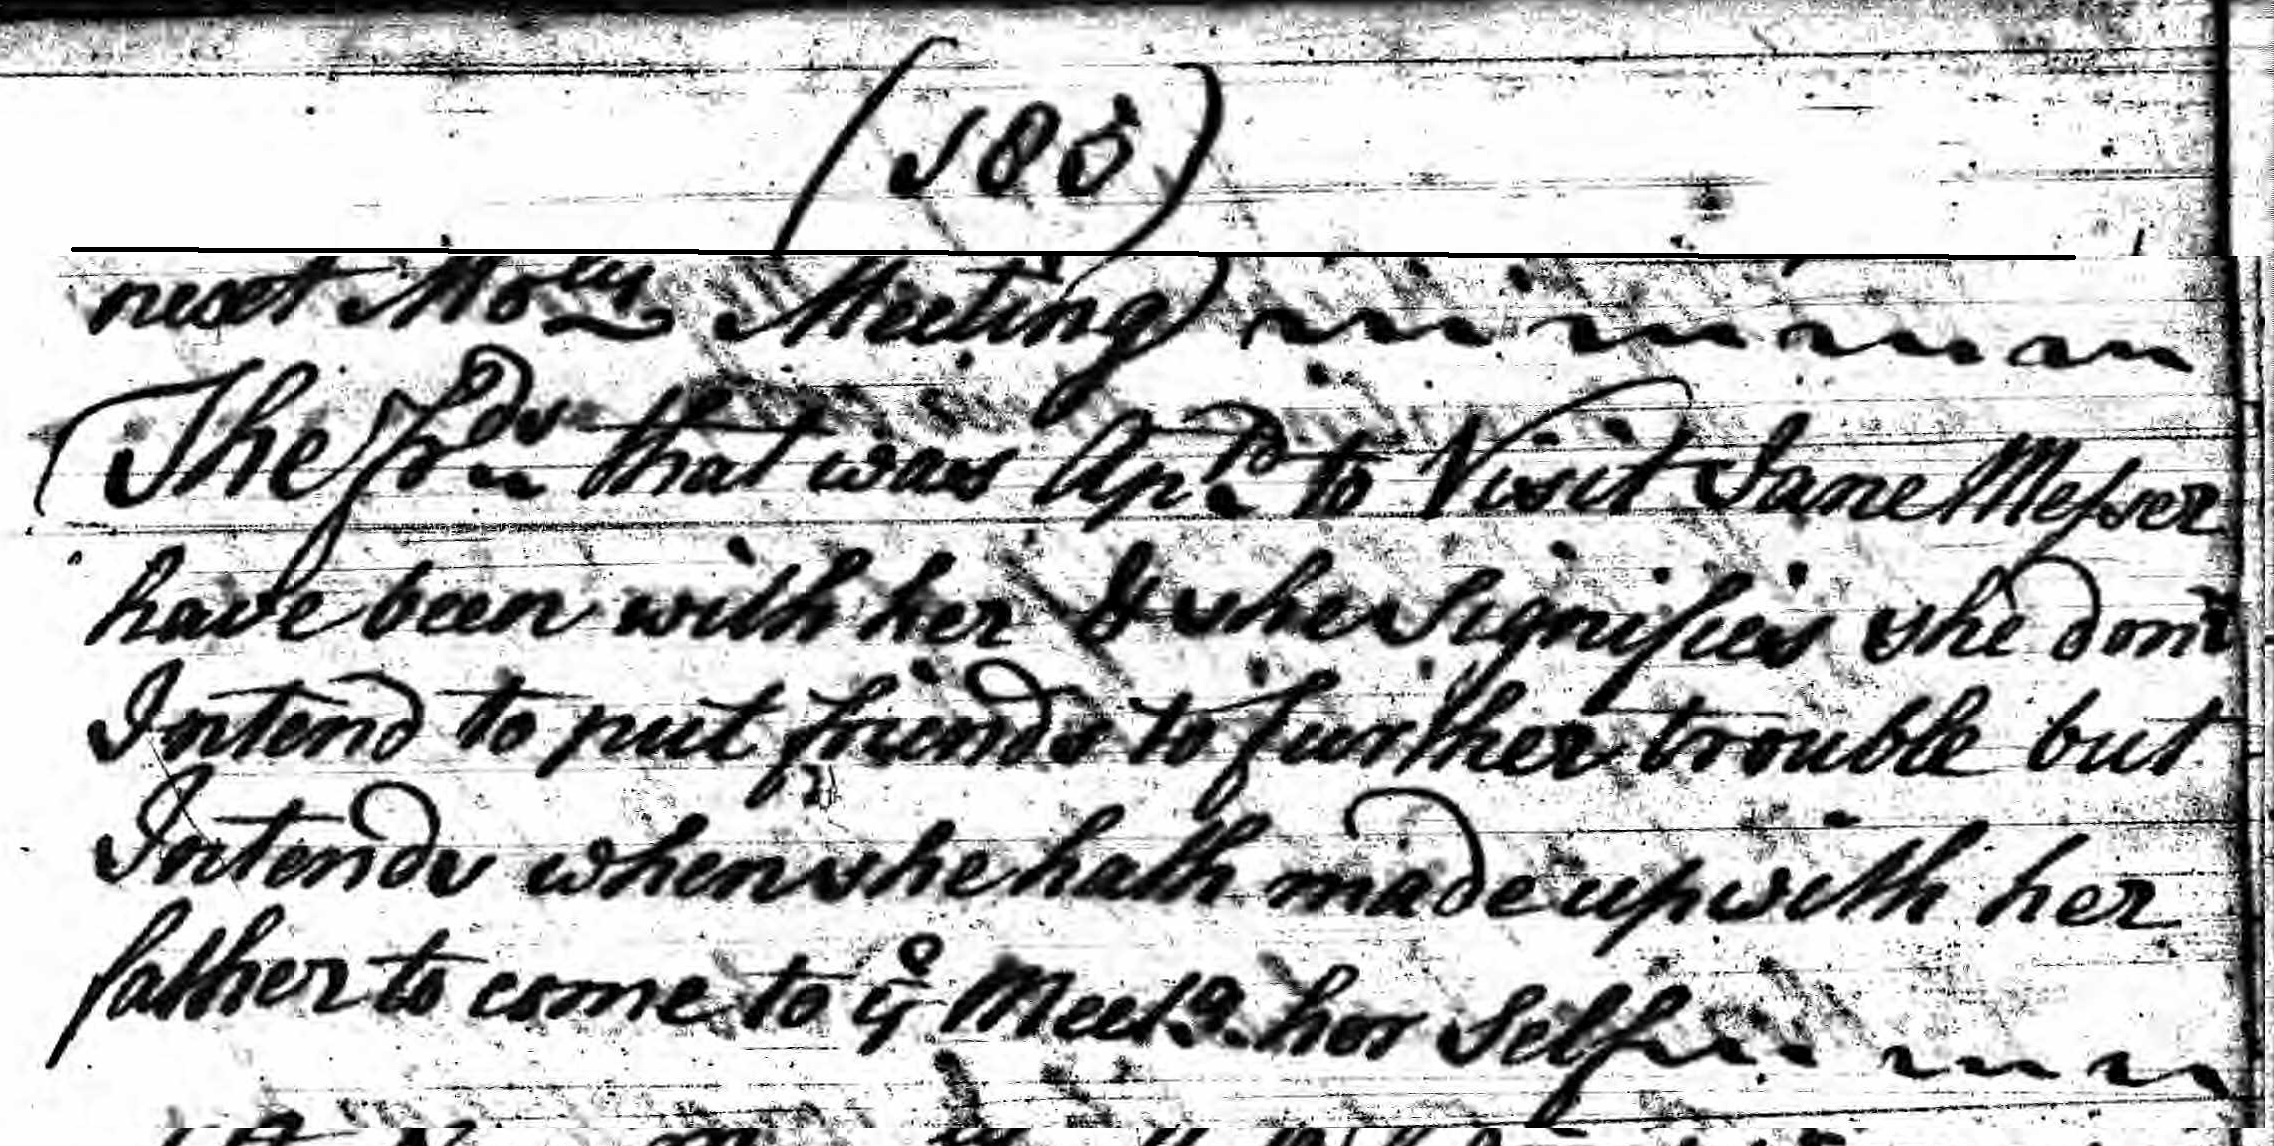 (180)
next Mo.ly Meeting
The Frds that was Apd to Visit Jane Messer
have been with her & she Signifies she dont
Intend to put friends to further trouble but
Intends when she hath made up with her
father to come to ye Meetg her Self